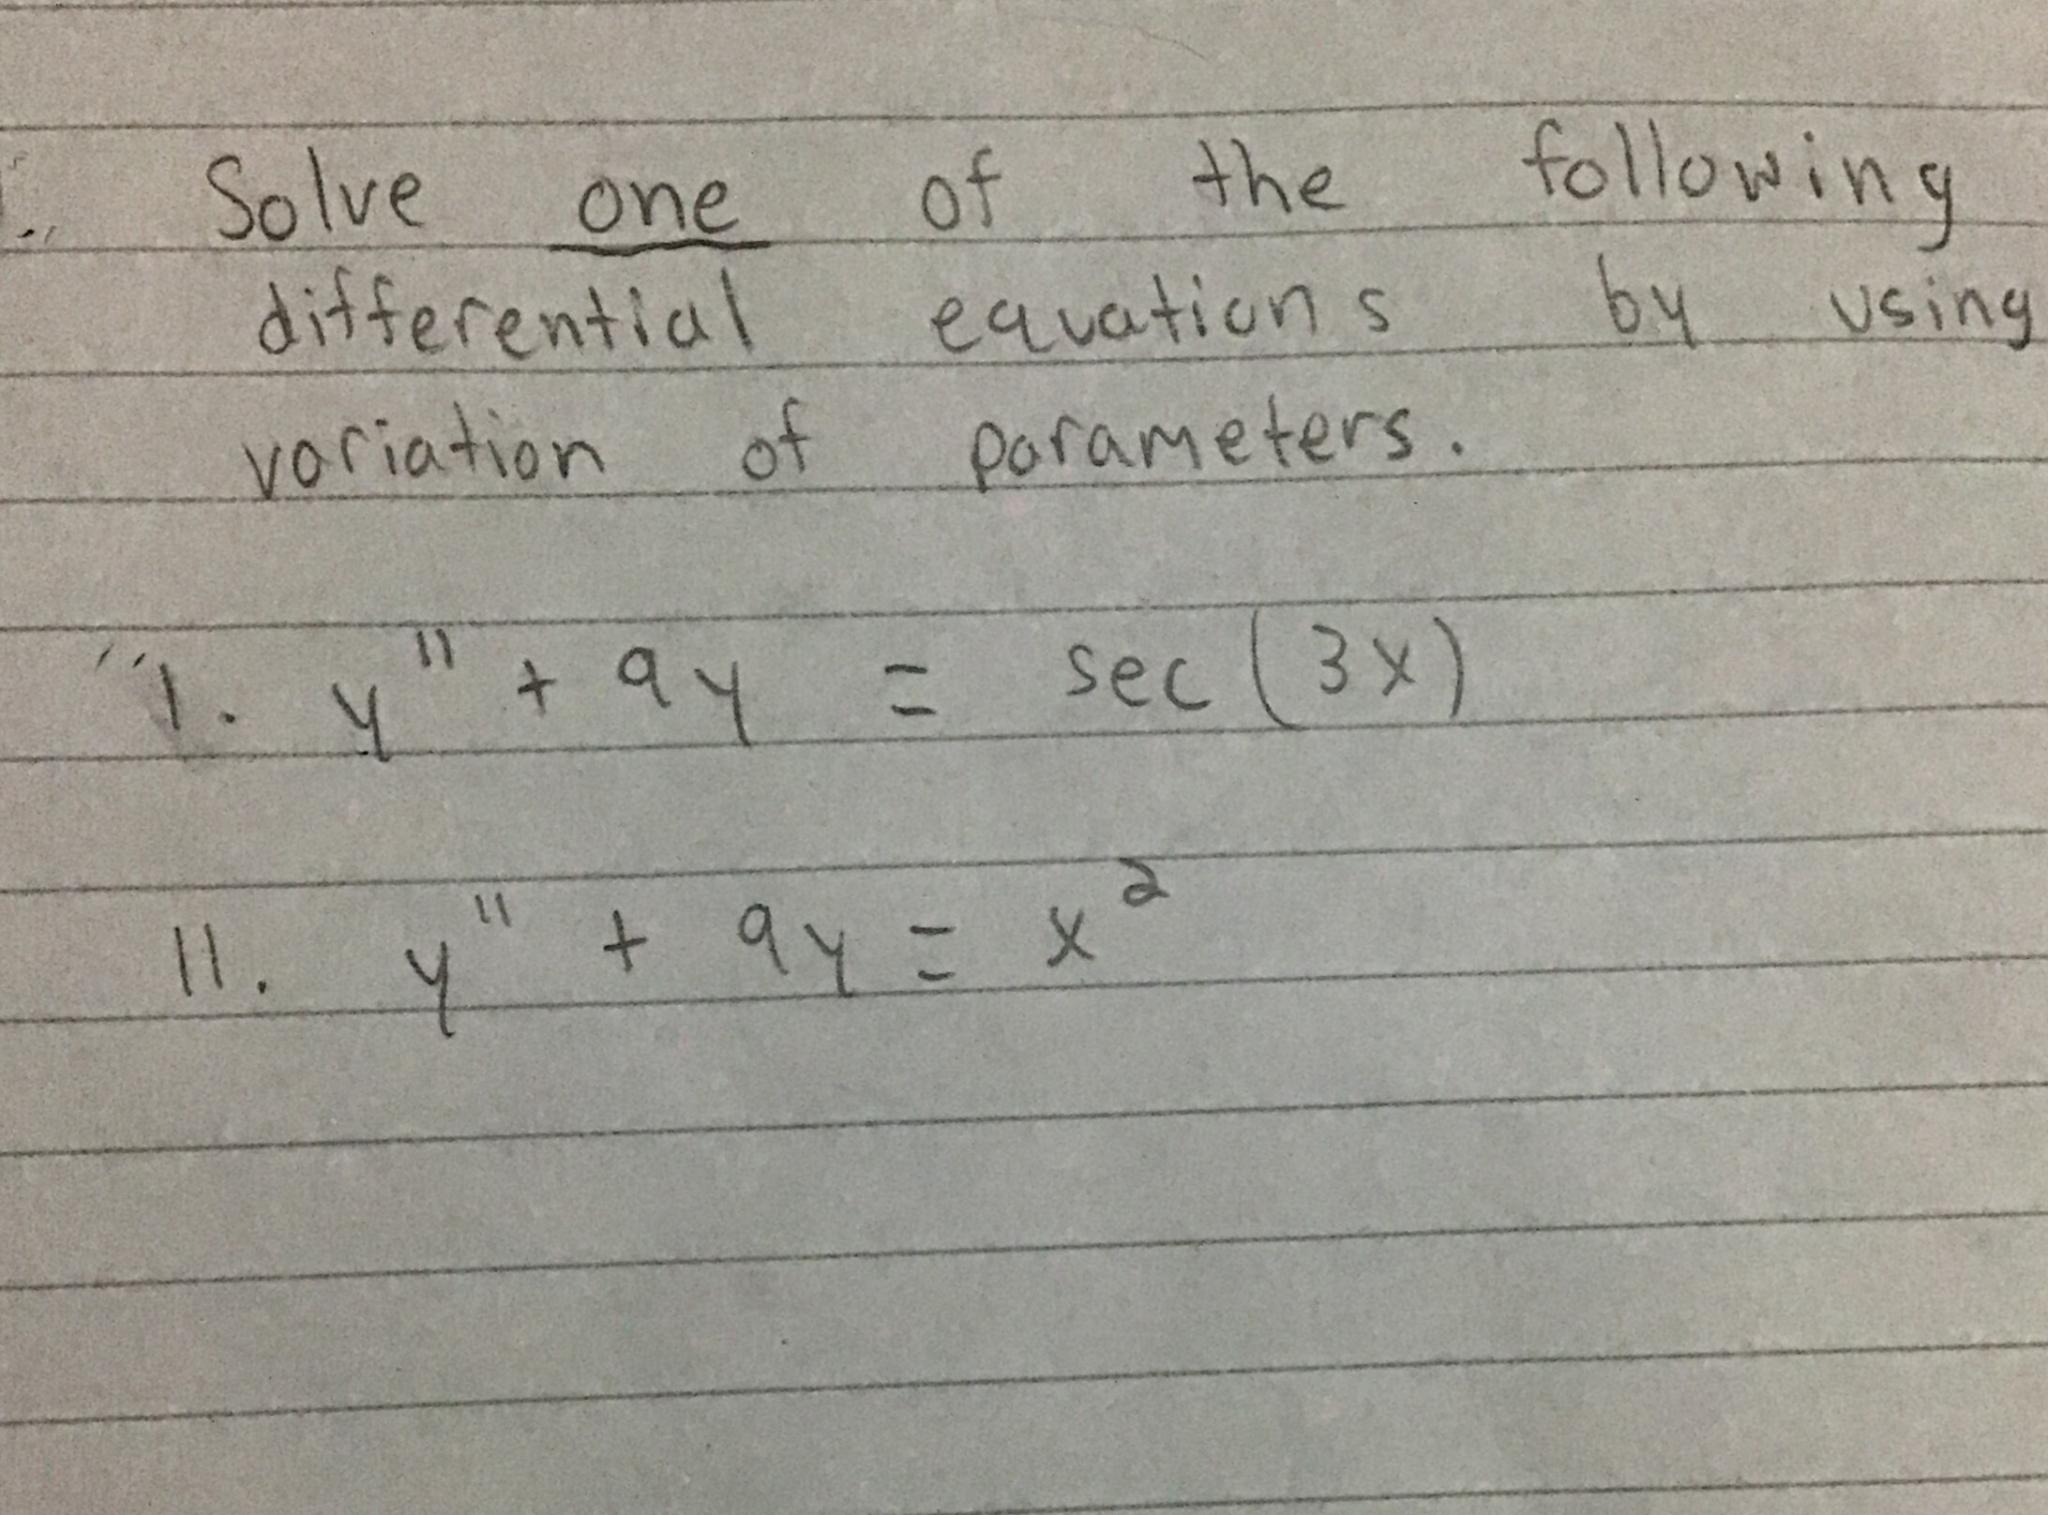 Solve one of the following
differential equations by using
variation of parameters.
I. y'' + 9y = sec(3x)
II. y'' + 9y = x²